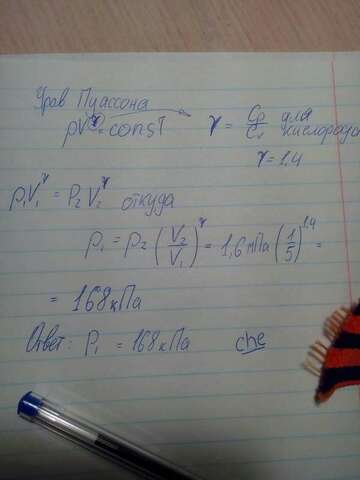 Урав Пуассона
pV^γ = const γ = Cp/Cv для кислорода
γ = 1,4
p₁V₁^γ = P₂V₂^γ откуда
p₁ = p₂ (V₂/V₁)^γ = 1,6 мПа (1/5)^1,4 =
= 168 кПа
Ответ: P₁ = 168 кПа che